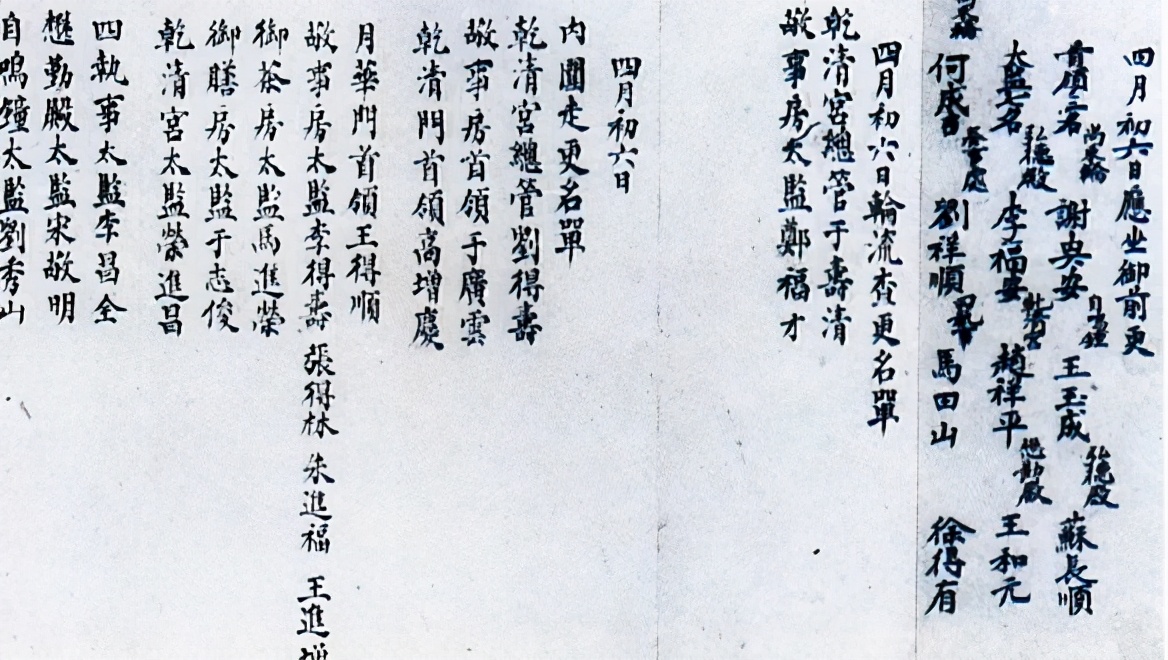 四月初六日應坐御前更
首領名 謝吳安 王玉成 蘇長順
太監名 李福安 趙祥平 王和元
何成 劉祥順 馬田山 徐得有
四月初六日輪流查更名單
乾清宮總管于壽清
敬事房太監鄭福才
四月初六日
内圍走更名單
乾清宮總管劉得壽
敬事房首領于廣雲
乾清門首領高增慶
月華門首領王得順
敬事房太監李得壽 張得林 朱進福 王進
御茶房太監馬進榮
御膳房太監于志俊
乾清宮太監榮進昌
四執事太監李昌全
懋勤殿太監宋敬明
自鳴鐘太監劉秀山